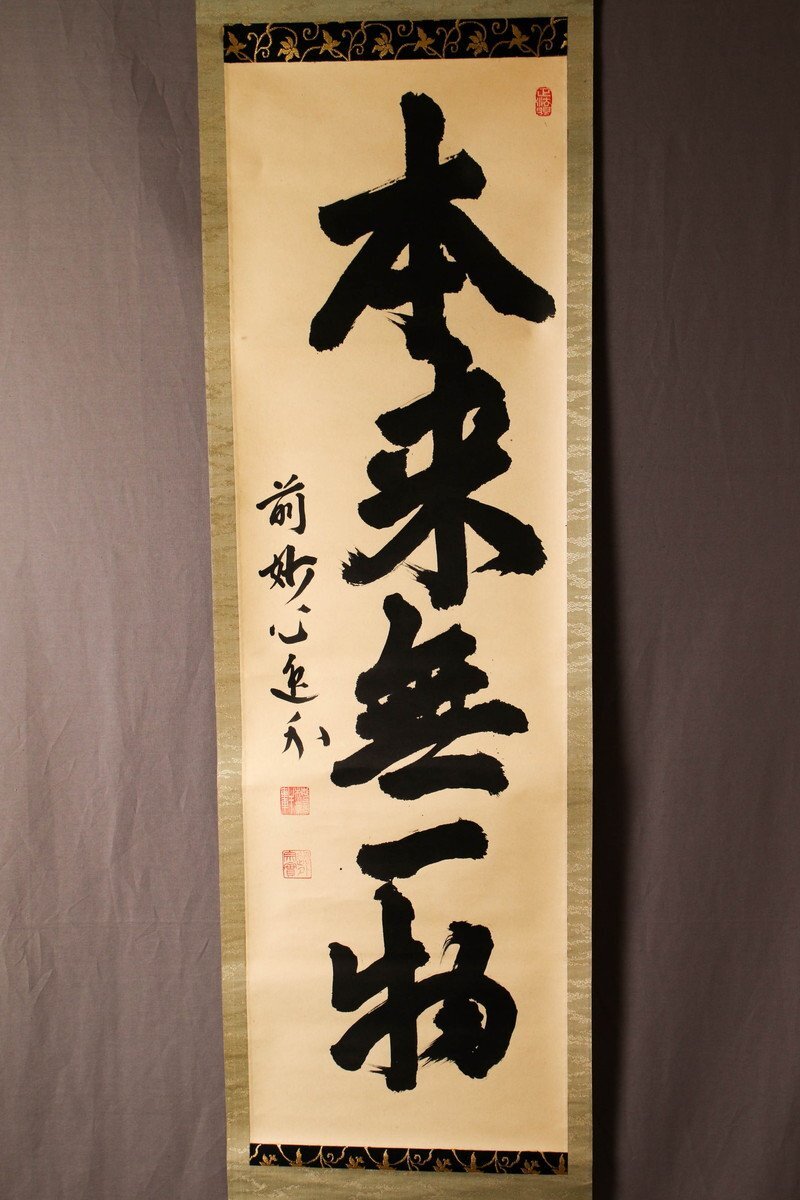 本来無一物
前妙心